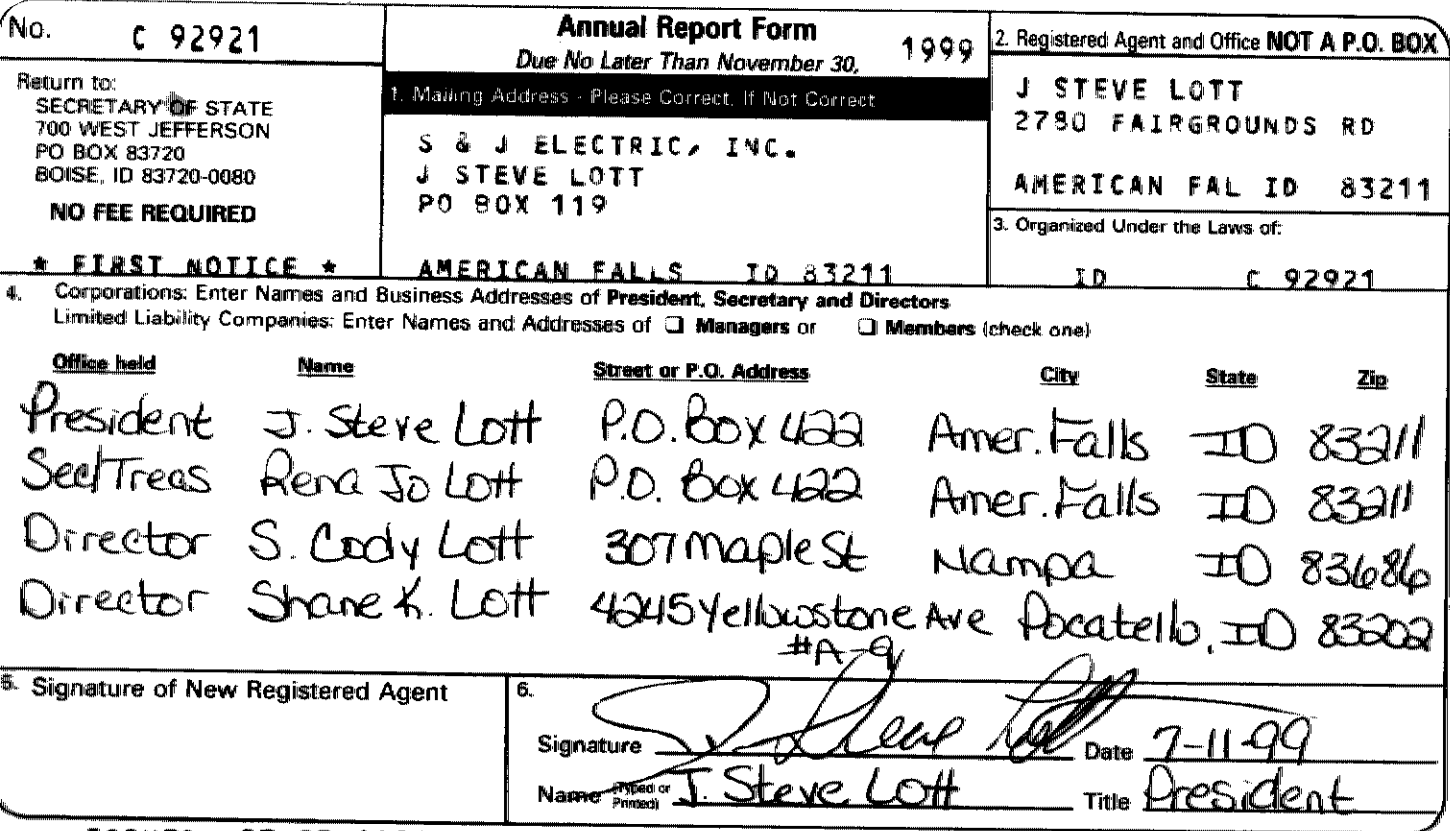 No. C 92921
Return to:
SECRETARY OF STATE
700 WEST JEFFERSON
PO BOX 83720
BOISE, ID 83720-0080
NO FEE REQUIRED
* FIRST NOTICE *
Annual Report Form 1999
Due No Later Than November 30,
1. Mailing Address - Please Correct, If Not Correct
S & J ELECTRIC, INC.
J STEVE LOTT
PO BOX 119
AMERICAN FALLS ID 83211
2. Registered Agent and Office NOT A P.O. BOX
J STEVE LOTT
2780 FAIRGROUNDS RD
AMERICAN FAL ID 83211
3. Organized Under the Laws of:
ID C 92921
4. Corporations: Enter Names and Business Addresses of President, Secretary and Directors
Limited Liability Companies: Enter Names and Addresses of ❑ Managers or ❑ Members (check one)
Office held Name Street or P.O. Address City State Zip
President J. Steve Lott P.O. Box 422 Amer. Falls ID 83211
Sec/Treas Rena Jo Lott P.O. Box 422 Amer. Falls ID 83211
Director S. Cody Lott 307 Maple St Nampa ID 83686
Director Shane K. Lott 4245 Yellowstone Ave Pocatello, ID 83202
#A-9
5. Signature of New Registered Agent
6.
Signature J. Steve Lott Date 7-11-99
Name (Typed or Printed) J. Steve Lott Title President